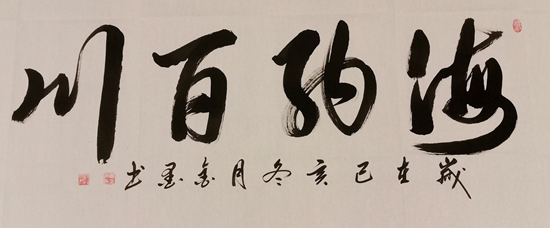 海纳百川
岁在己亥冬月金墨书